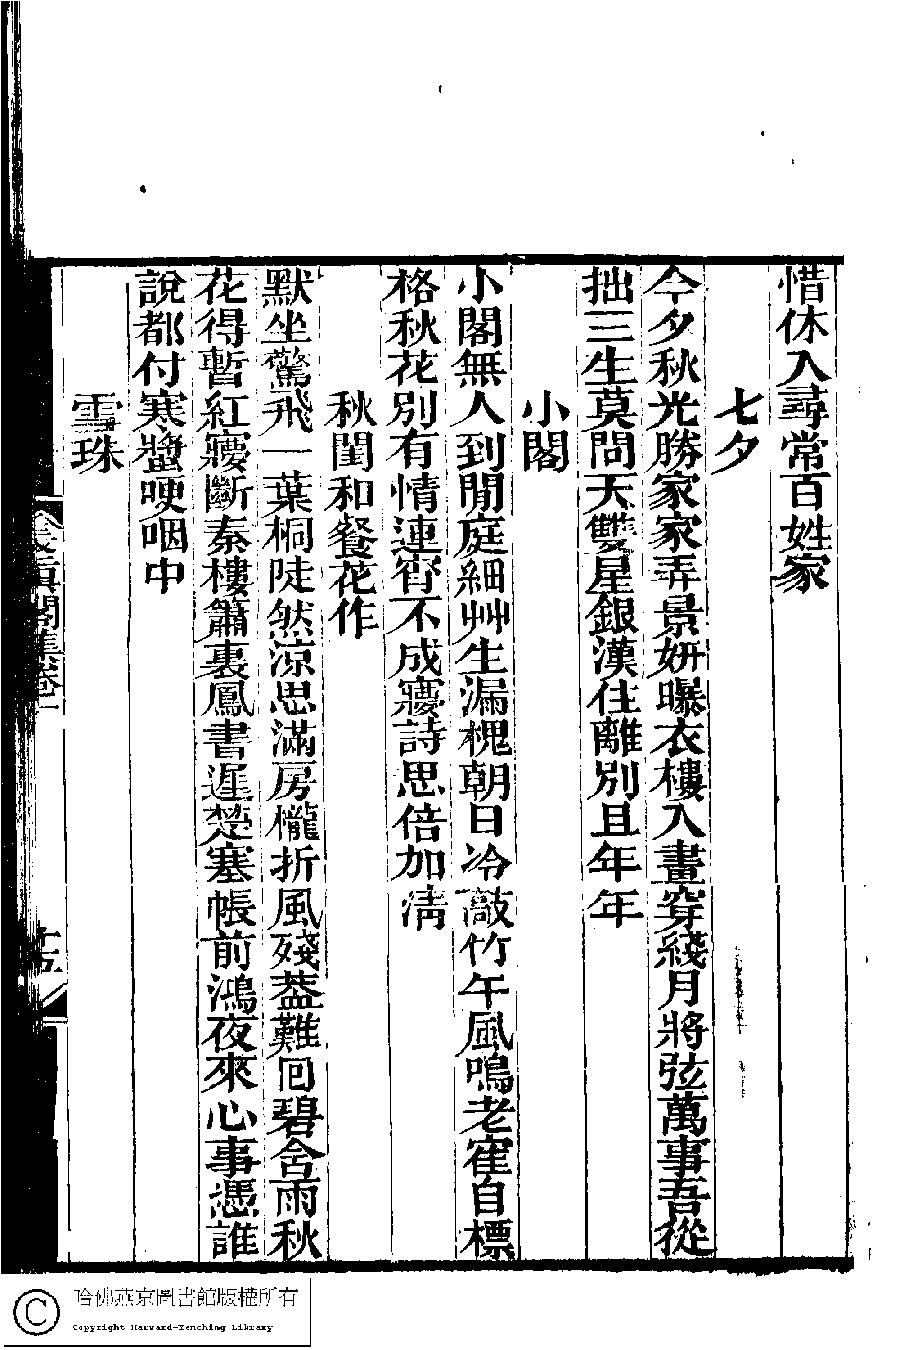 惜休入尋常百姓家
七夕
今夕秋光勝家家弄景妍曝衣樓入畫穿綫月將弦萬事吾從
拙三生莫問天雙星銀漢住離別且年年
小閣
小閣無人到閒庭細艸生漏槐朝日冷敲竹午風鳴老寉自標
格秋花別有情連宵不成㝱詩思倍加淸
秋閨和餐花作
默坐驚飛一葉桐陡然涼思滿房櫳折風殘葢難回碧舍雨秋
花得暫紅㝱斷秦樓簫裏鳳書遲楚塞帳前鴻夜來心事憑誰
說都付寒螿哽咽中
雪珠
長眞閣集卷一
十五
哈佛燕京圖書館版權所有
Copyright Harvard-Yenching Library